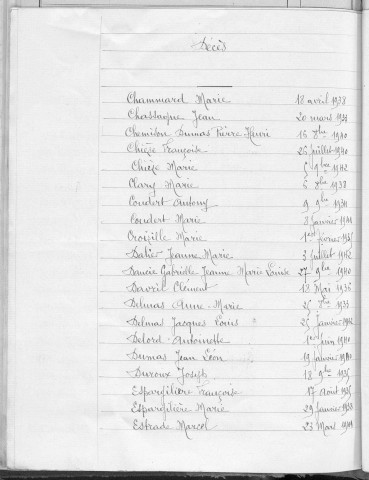 Décès
Chammard Marie 18 avril 1938
Chastagne Jean 20 mars 1931
Chemison Dumas Pierre Henri 16 8bre 1940
Chièze Françoise 26 juillet 1940
Chièze Marie 5 9bre 1942
Clary Marie 6 8bre 1938
Coudert Antony 9 9bre 1931
Coudert Marie 8 Janvier 1941
Croizille Marie 1er février 1935
Dalier Jeanne Marie 3 juillet 1942
Daucie Gabrielle Jeanne Marie Louise 27 9bre 1940
David Clément 12 Mai 1936
Delmas Anne-Marie 26 8bre 1933
Delmas Jacques Louis 25 Janvier 1942
Delord Antoinette 1er Juin 1940
Dumas Jean Léon 19 janvier 1940
Duroux Joseph 18 9bre 1935
Esparfilière Françoise 17 Août 1935
Esparfilière Marie 29 Janvier 1938
Estrade Marcel 23 Mars 1941